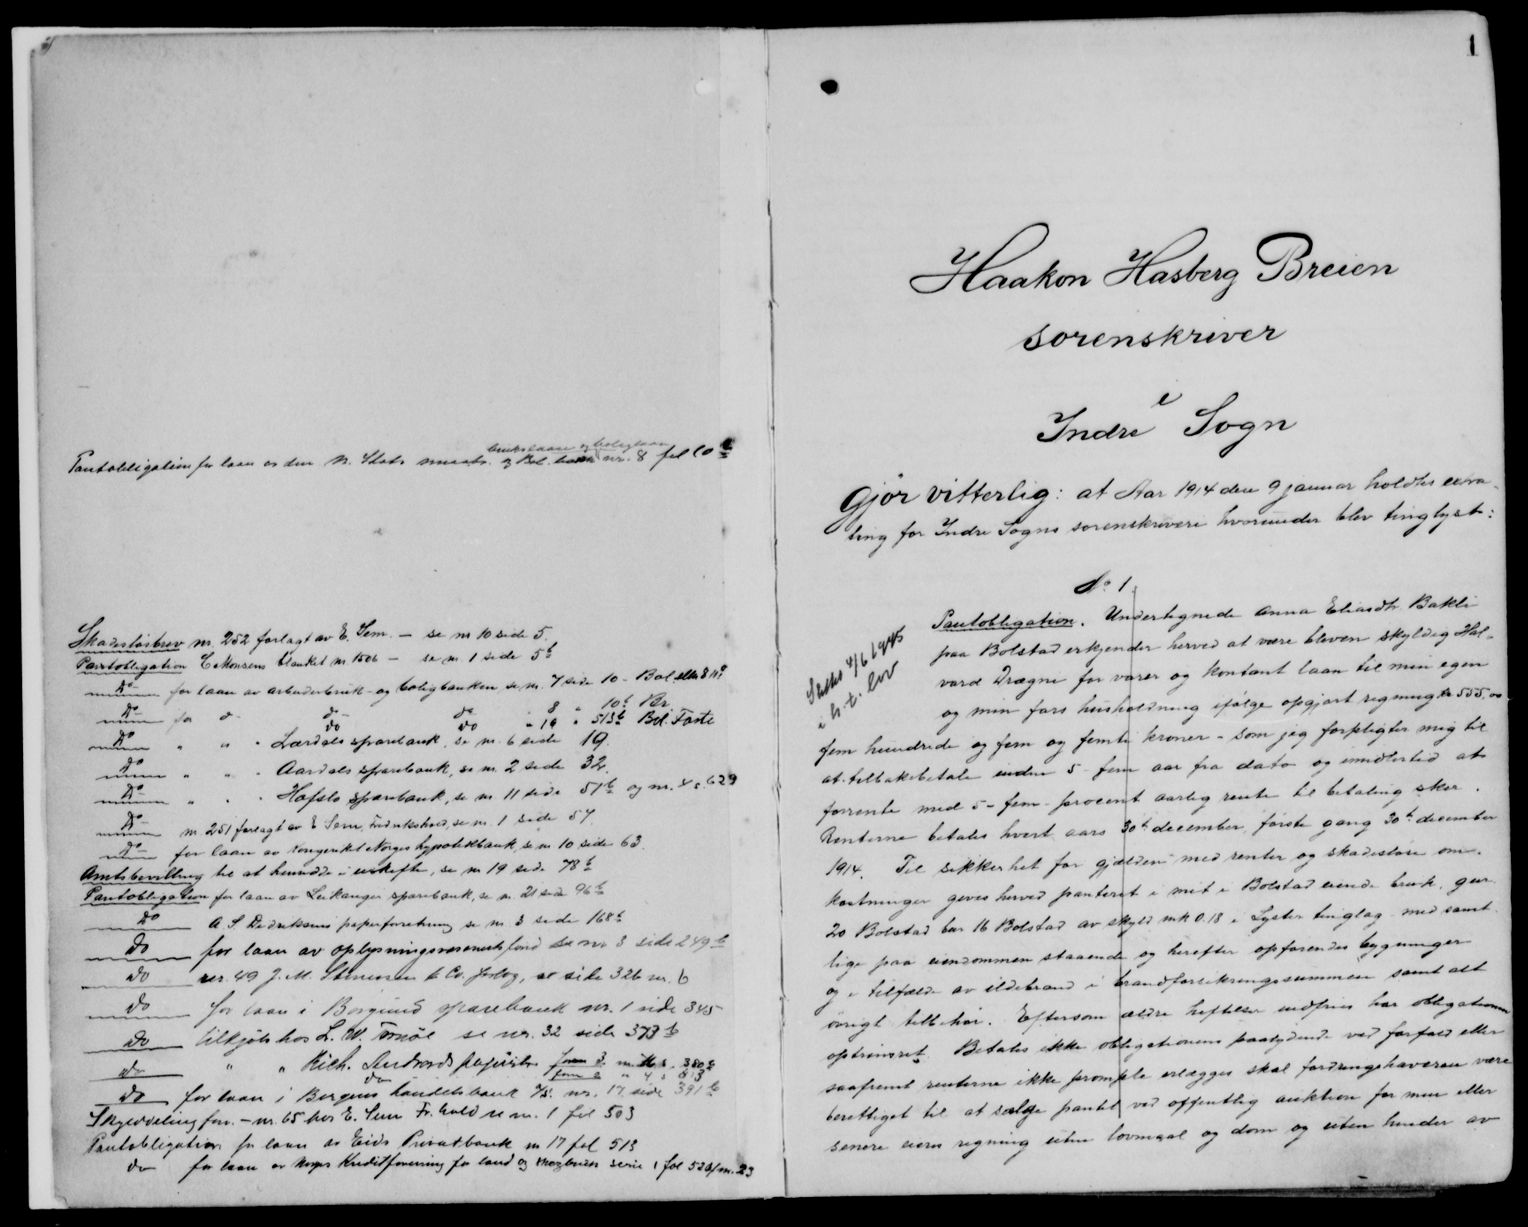 Pantobligation for laan av den N. Stats smaabr. og Bol. bank nr. 8 fol 10 b
brukslaane og boliglaan
Skadesløsbrev nr. 252 forlagt av E. Sem. — se nr 10 side 5.
Pantobligation blanket nr 1506 — se nr 1 side 5 b
Do for laan av arbeiderbruk- og boligbanken se nr. 7 side 10 - Bol
Do for do do do " 8 " 10 b Br
Do do " 19 " 513 b Bol. Første
Do " " " Lærdals sparebank, se nr. 6 side 19.
Do " " " Aardals sparebank, se nr. 2 side 32.
Do " " " Hafslo sparebank, se nr 11 side 51 b og nr. 4 s. 629
Do nr 251 forlagt av E Sem, Fredrikshald, se nr. 1 side 57.
Do for laan av kongeriket Norges hypotekbank se nr 10 side 63.
Amtsbevilling til at hensidde i uskifte, se nr 19 side 78 b
Pantobligation for laan av Leikanger sparebank, se nr. 21 side 96 b
Do A. S. Dedreksens papirforretning se nr. 3 side 168 b
Do for laan av oplysningsvæsenets fond se nr 3 side 249 b
Do nr. 49 J. M. Stenersen & Co. forlag, se side 326 nr. 6
Do for laan i Borgund sparebank nr. 1 side 345
Do tilkjøb hos L. M. se nr. 32 side 373 b
Do " " Rich. Andvords papirh.
Do for laan i Bergens handelsbank A/S. nr. 17 side 391 b
Skylddeling for. - nr. 65 hos E. Sem Fr. hald se nr. 1 fol 503
Pantobligation for laan av Eids Privatbank nr 17 fol 513
do for laan av Norges Kreditforening for land og skogbruk serie 1 fol 520/nr. 23
1
Haakon Hasberg Breien
sorenskriver
i
Indre Sogn
Gjør vitterlig: at Aar 1914 den 9 januar holdtes extra-
ting for Indre Sogns sorenskriveri hvorunder blev tinglyst:
No 1.
Slettes 4/6 1945
i h. t. lov
Pantobligation. Undertegnede Anna Eliasdtr. Bakli
paa Bolstad erkjender herved at være bleven skyldig Hal-
vard Drægni for varer og kontant laan til min egen
og min fars husholdning ifølge opgjort regning kr 555.00
fem hundrede og fem og femti kroner - som jeg forpligter mig til
at tilbakebetale inden 5 - fem aar fra dato og imidlertid at
forrente med 5 - fem - procent aarlig rente til betaling sker.
Renterne betales hvert aars 30te december, første gang 30te december
1914. Til sikkerhet for gjælden med renter og skadesløse om-
kostninger gives herved panteret i mit i Bolstad eiende bruk, gnr
20 Bolstad bnr 16 Bolstad av skyld mk 0.18 i Lyster tinglag med samt-
lige paa eiendommen staaende og herefter opførendes bygninger
og i tilfælde av ildebrand i brandforsikringssummen samt alt
øvrigt tilbehør. Eftersom ældre heftelser indfries har obligationen
optrinsret. Betales ikke obligationens paalydende ved forfald eller
saafremt renterne ikke prompte erlægges skal fordringshaveren være
berettiget til at sælge pantet ved offentlig auktion for min eller
senere eiers regning uten lovmaal og dom og uten hinder av